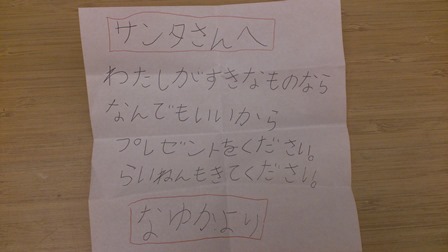 サンタさんへ
わたしがすきなものなら
なんでもいいから
プレゼントをください。
らいねんもきてください。
なゆかより